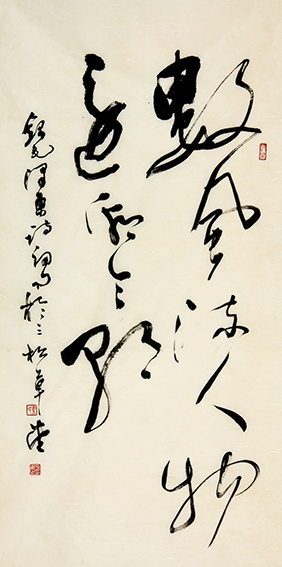 數風流人物
還看今朝
錄毛澤東詩詞於三松草堂